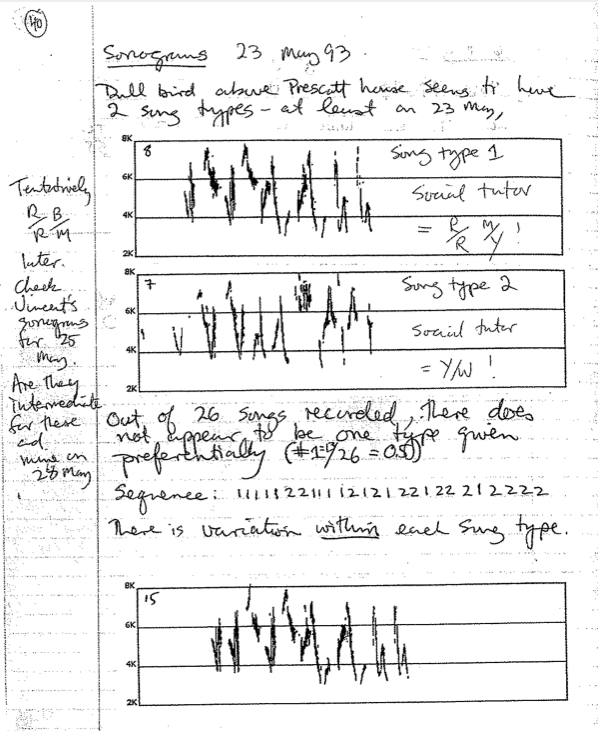 40
Sonograms 23 May 93.
Dull bird above Prescott house seems to have
2 song types - at least on 23 May,
8K
8
Song type 1
6K
Social tutor
4K
= R/R M/Y !
2K
Tentatively
R/R B/M
later.
Check
Vincent's
sonograms
for 25
May.
Are they
intermediate
for these
and
mine on
28 May
8K
7
Song type 2
6K
Social tutor
4K
= Y/W !
2K
Out of 26 songs recorded, there does
not appear to be one type given
preferentially (#1=13/26 = 0.5)
Sequence: 11111221111212122122212222
There is variation within each song type.
8K
15
6K
4K
2K